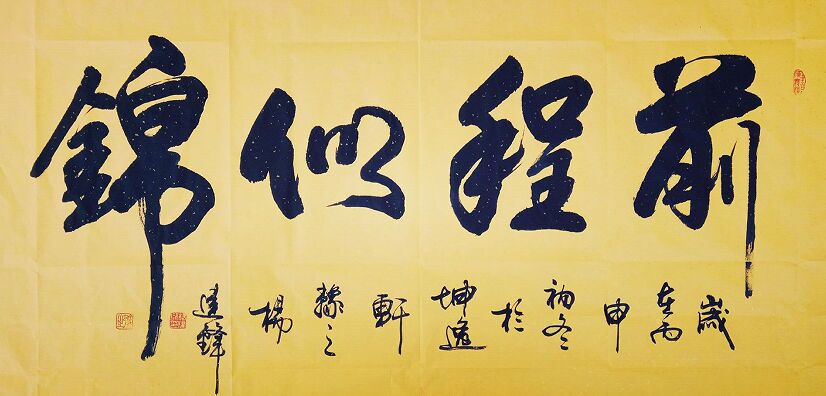 前程似錦
歲在丙申初冬於坤逸軒之楊建鋒